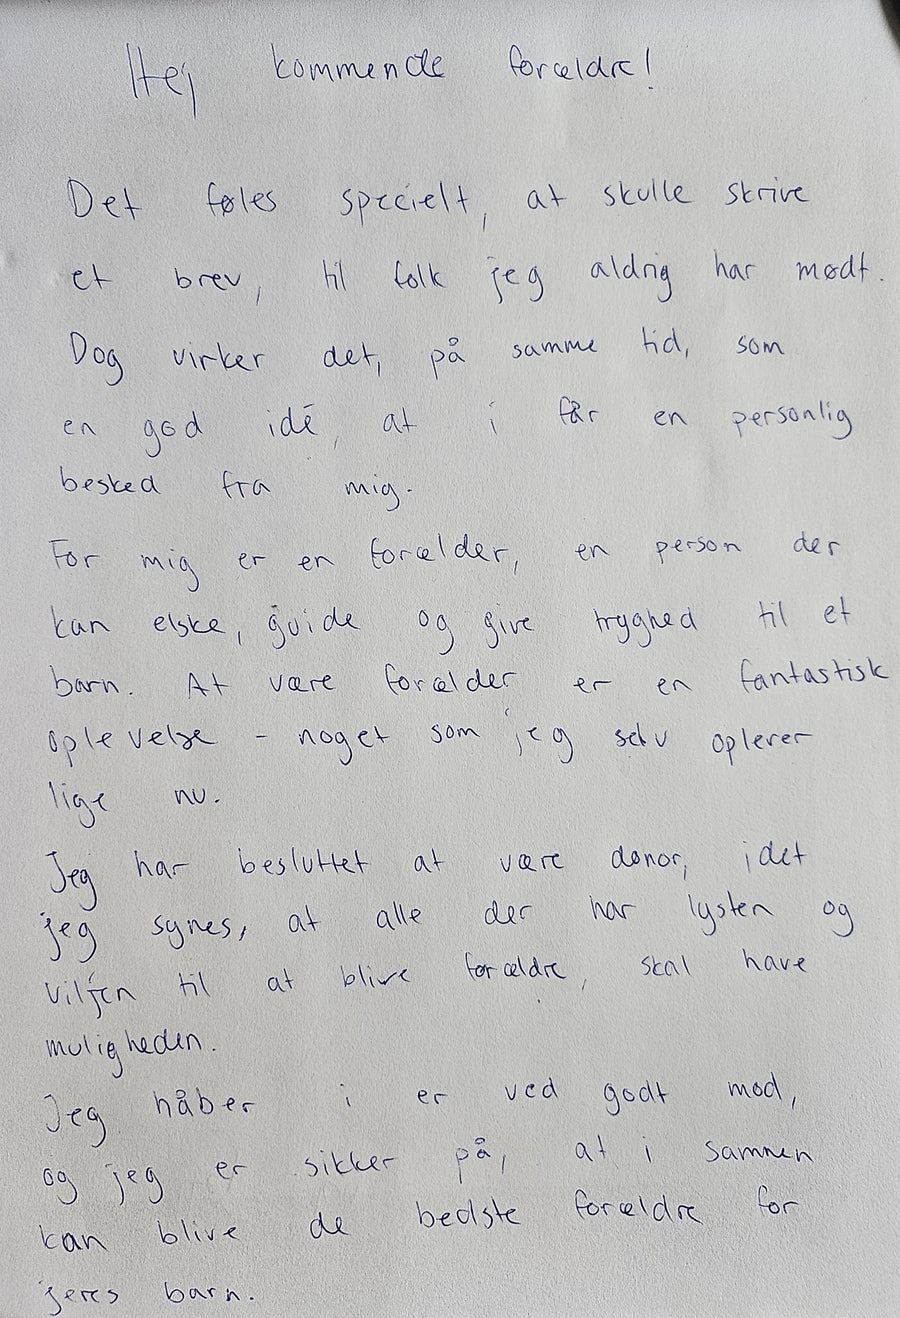 Hej kommende forældre!
Det føles specielt, at skulle skrive
et brev, til folk jeg aldrig har mødt.
Dog virker det, på samme tid, som
en god idé, at i får en personlig
besked fra mig.
For mig er en forælder, en person der
kan elske, guide og give tryghed til et
barn. At være forælder er en fantastisk
oplevelse - noget som jeg selv oplever
lige nu.
Jeg har besluttet at være donor, idet
jeg synes, at alle der har lysten og
viljen til at blive forældre, skal have
muligheden.
Jeg håber i er ved godt mod,
og jeg er sikker på, at i sammen
kan blive de bedste forældre for
jeres barn.